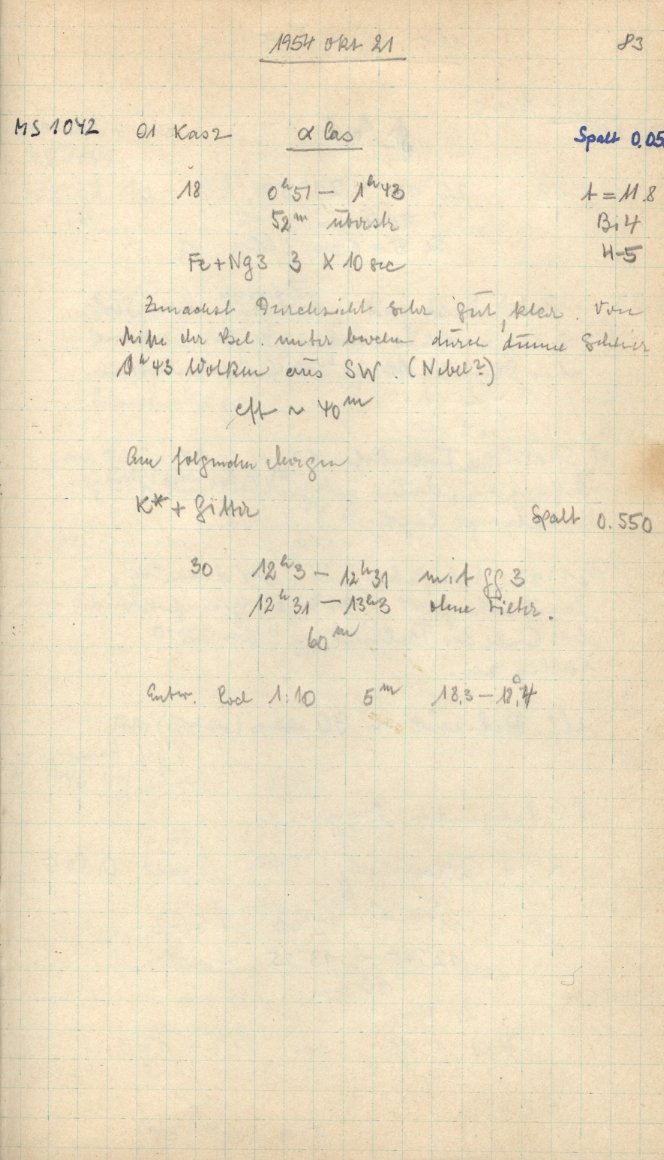 1954 Okt 21 83
MS 1042 01 Kasz α Cas Spalt 0.05
18 0ʰ51 – 1ʰ43 t = 11.8
52ᵐ überstr Bi4
Fe+Ng3 3 × 10 sec H-5
Zunächst Durchsicht sehr gut, klar. Von
Mitte der Bel. unter durch dünne Schleier
1ʰ43 Wolken aus SW. (Nebel?)
eff ~ 40ᵐ
Am folgenden Morgen
K* + Gitter Spalt 0.550
30 12ʰ3 – 12ʰ31 mit gg 3
12ʰ31 – 13ʰ3 ohne Filter.
60ᵐ
Entw. Rod 1:10 5ᵐ 18,3 – 18,°4